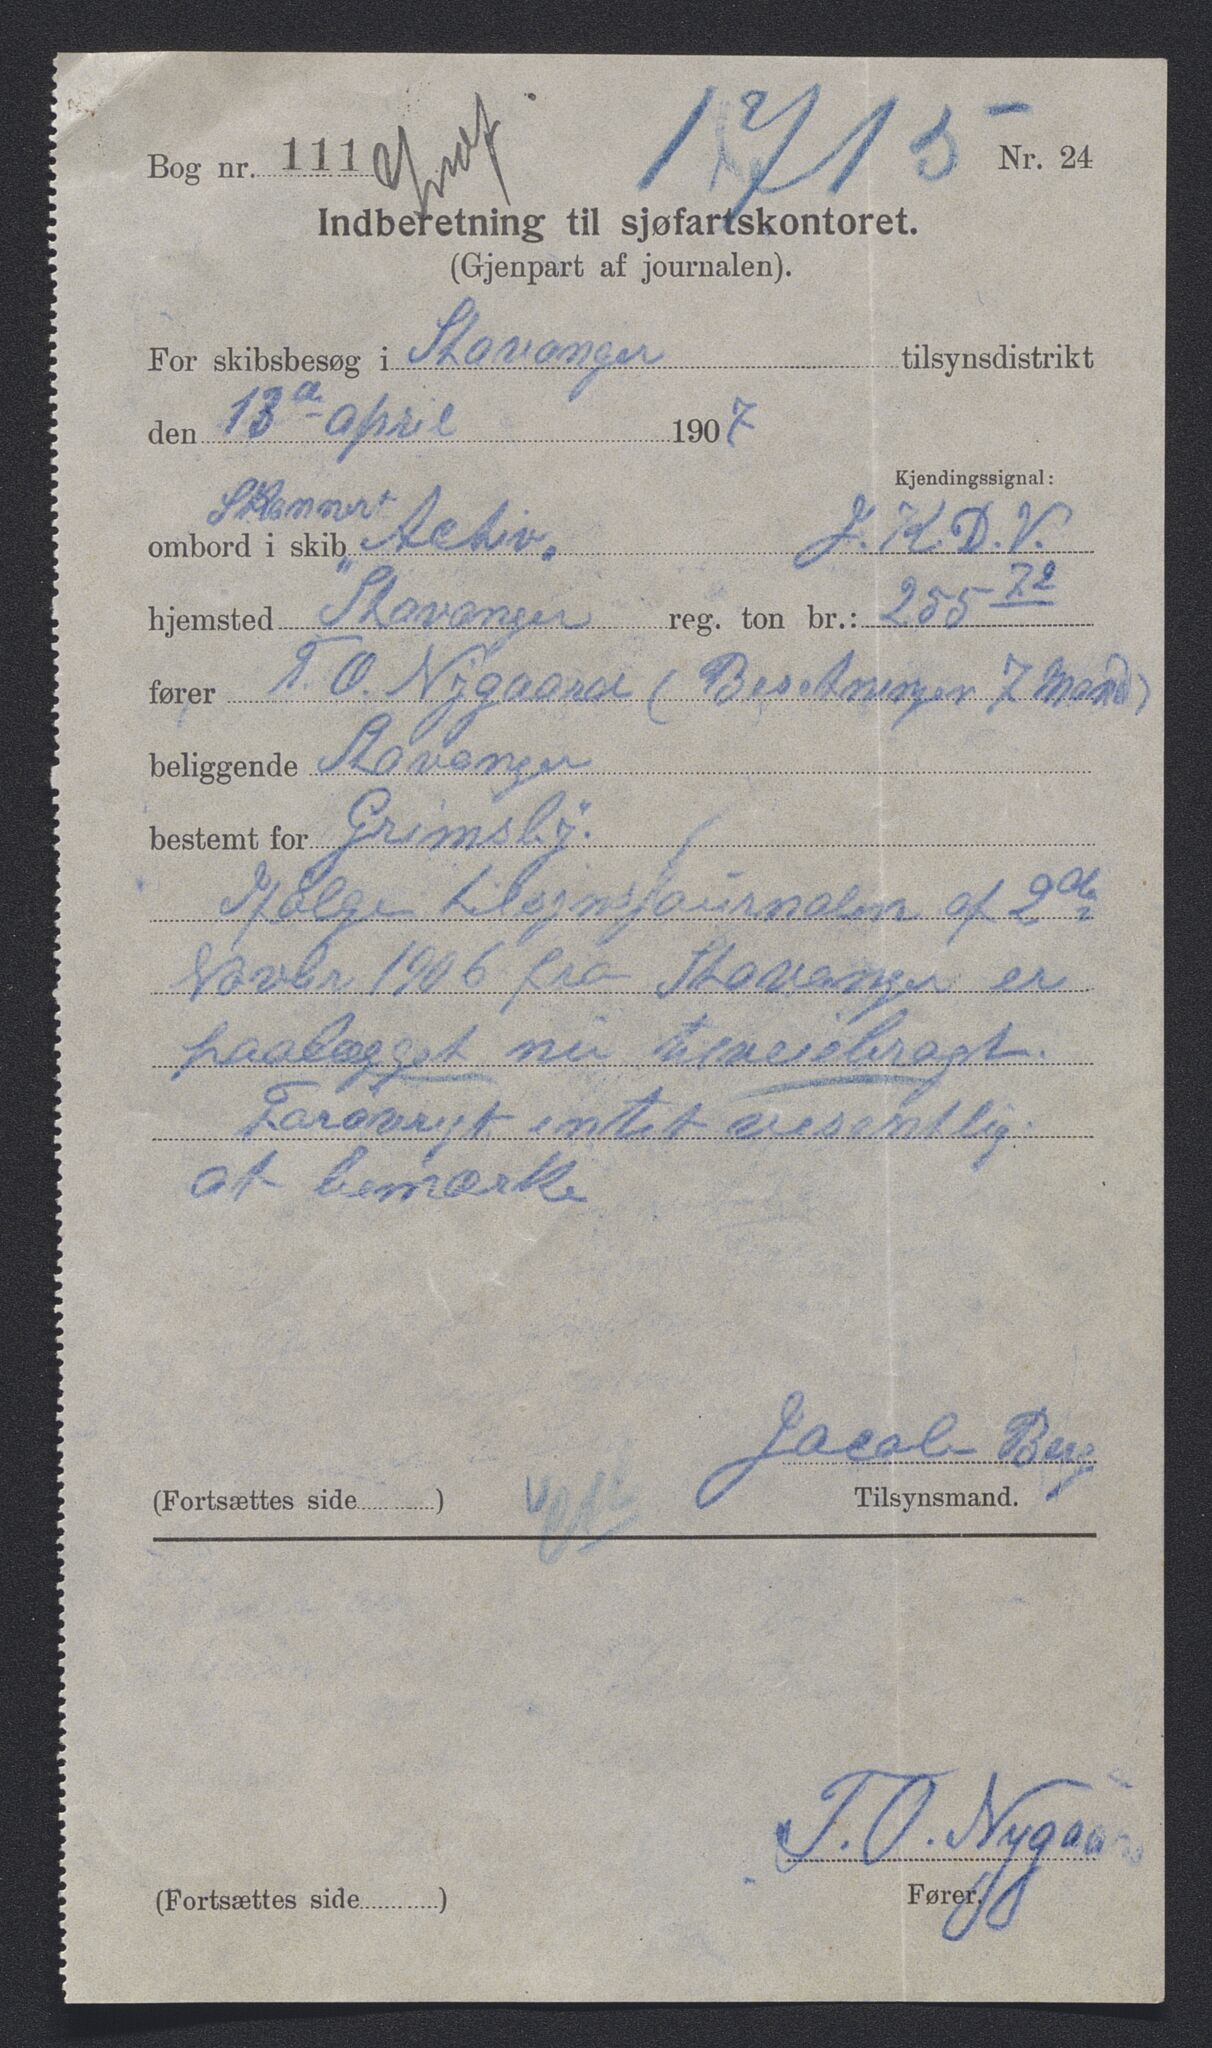 1715
Bog nr. 111 Nr. 24
Indberetning til sjøfartskontoret.
(Gjenpart af journalen).
For skibsbesøg i Stavanger tilsynsdistrikt
den 13de april 1907
Kjendingssignal:
Skonnert
ombord i skib "Activ" J. K. D. V.
hjemsted Stavanger reg. ton br.: 255 72
fører T. O. Nygaard (Besetningen 7 Mand)
beliggende Stavanger
bestemt for Grimsby.
Ifølge tilsynsjournalen af 2de
Novbr 1906 fra Stavanger er
paalægget nu tilveiebragt.
Forøvrigt intet vesentlig
at bemærke
Jacob Berg
(Fortsættes side ) Tilsynsmand.
T. O. Nygaard
(Fortsættes side ) Fører.